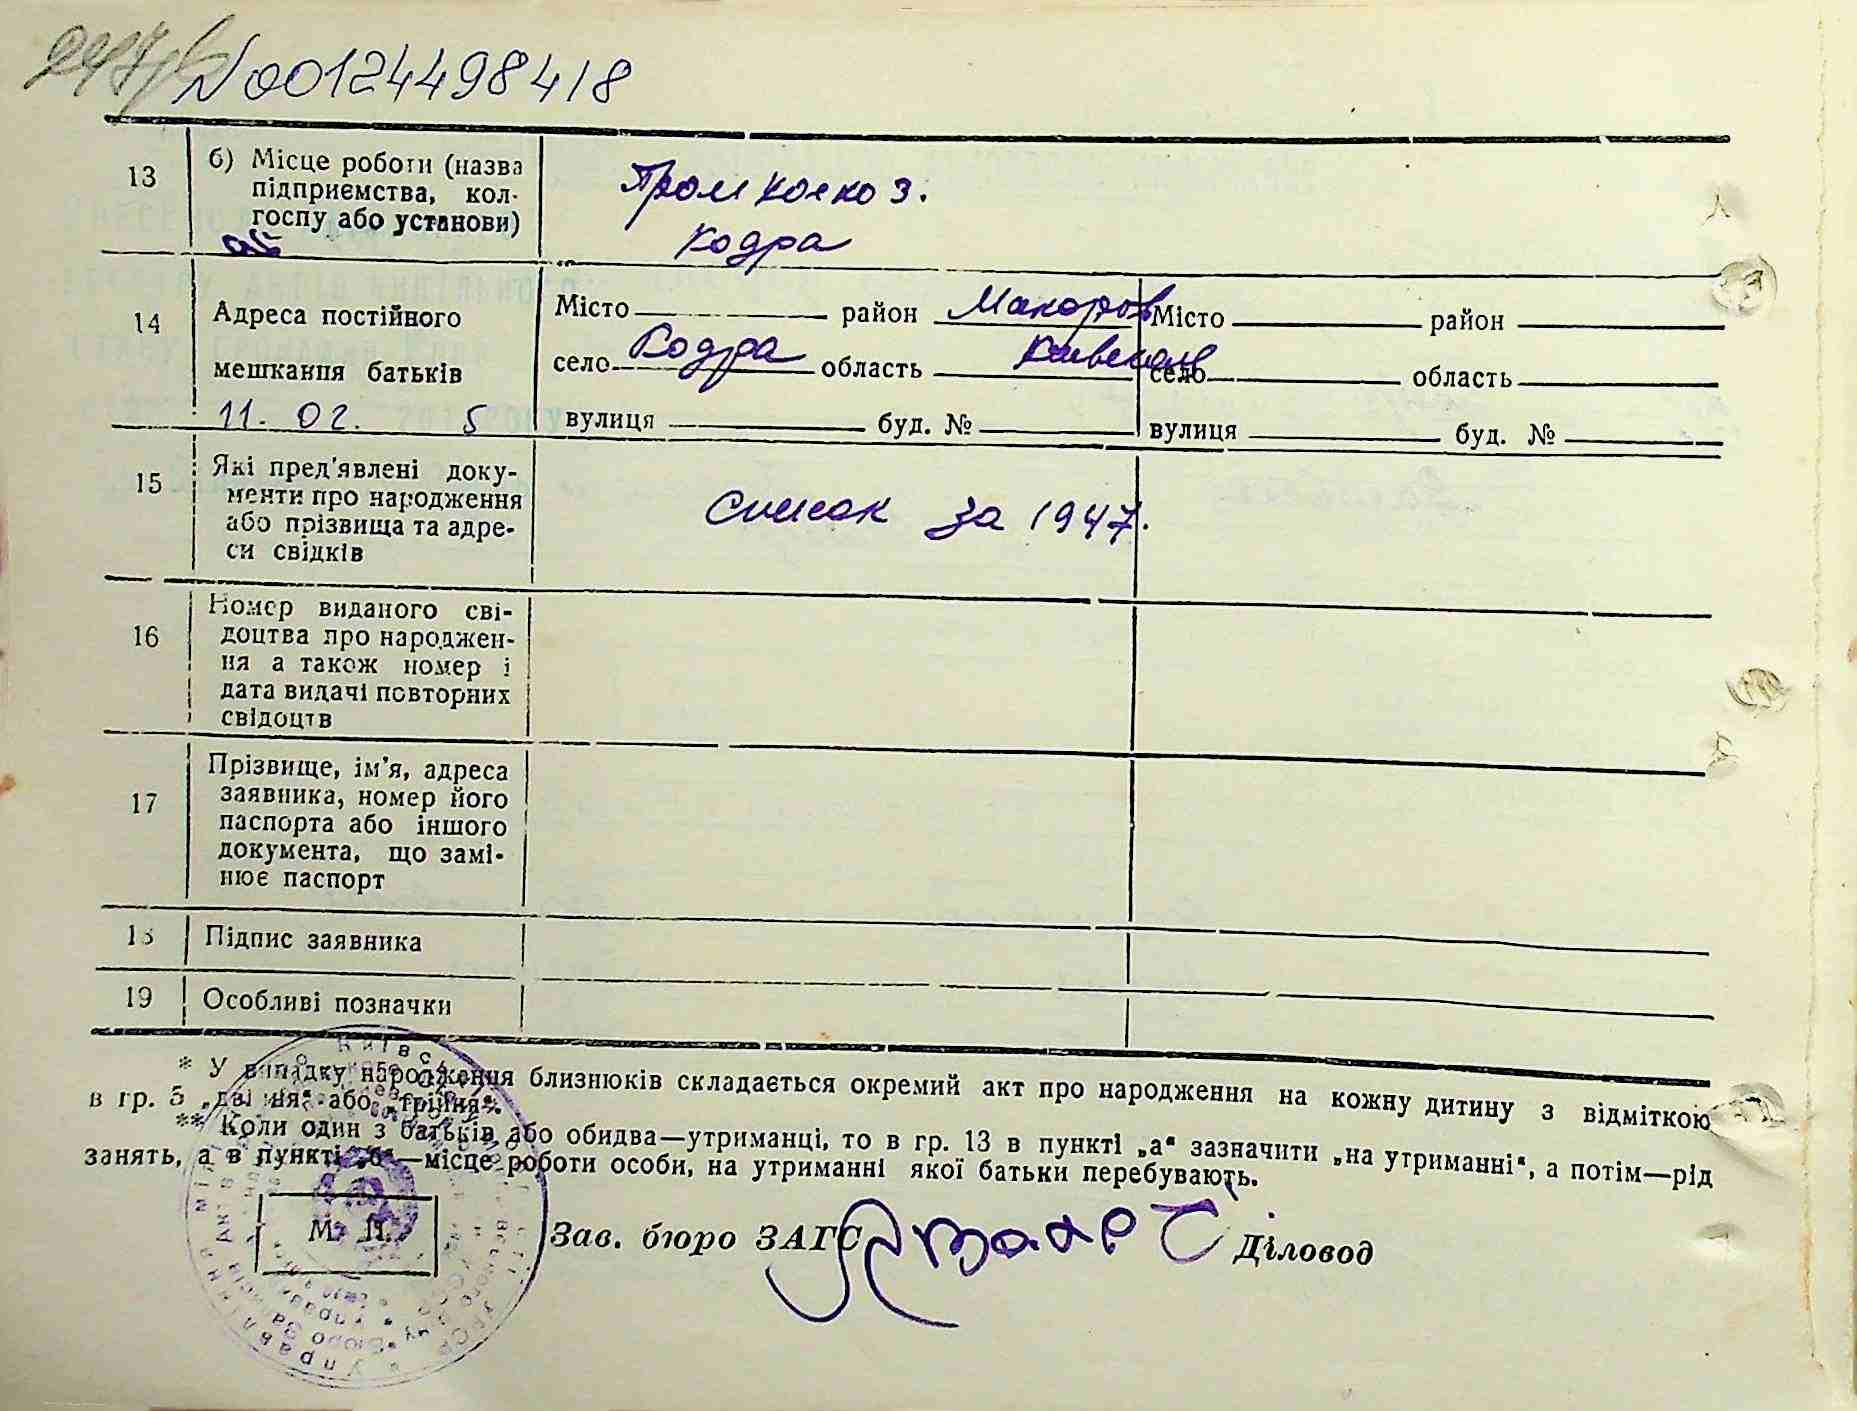 №00124498418
13 б) Місце роботи (назва
підприємства, кол-
госпу або установи)
Промколхоз.
Кодра
14 Адреса постійного
мешкання батьків
11. 02. 5
Місто район Макаров
село Кодра область Київська
вулиця буд. №
Місто район
село область
вулиця буд. №
15 Які пред'явлені доку-
менти про народження
або прізвища та адре-
си свідків
Список за 1947.
16 Номер виданого сві-
доцтва про народжен-
ня а також номер і
дата видачі повторних
свідоцтв
17 Прізвище, ім'я, адреса
заявника, номер його
паспорта або іншого
документа, що замі-
нює паспорт
18 Підпис заявника
19 Особливі позначки
* У випадку народження близнюків складається окремий акт про народження на кожну дитину з відміткою
в гр. 5 „двійня“ або „трійня“.
** Коли один з батьків або обидва—утриманці, то в гр. 13 в пункті „а“ зазначити „на утриманні“, а потім—рід
занять, а в пункті „б“—місце роботи особи, на утриманні якої батьки перебувають.
М. П. Зав. бюро ЗАГС Діловод